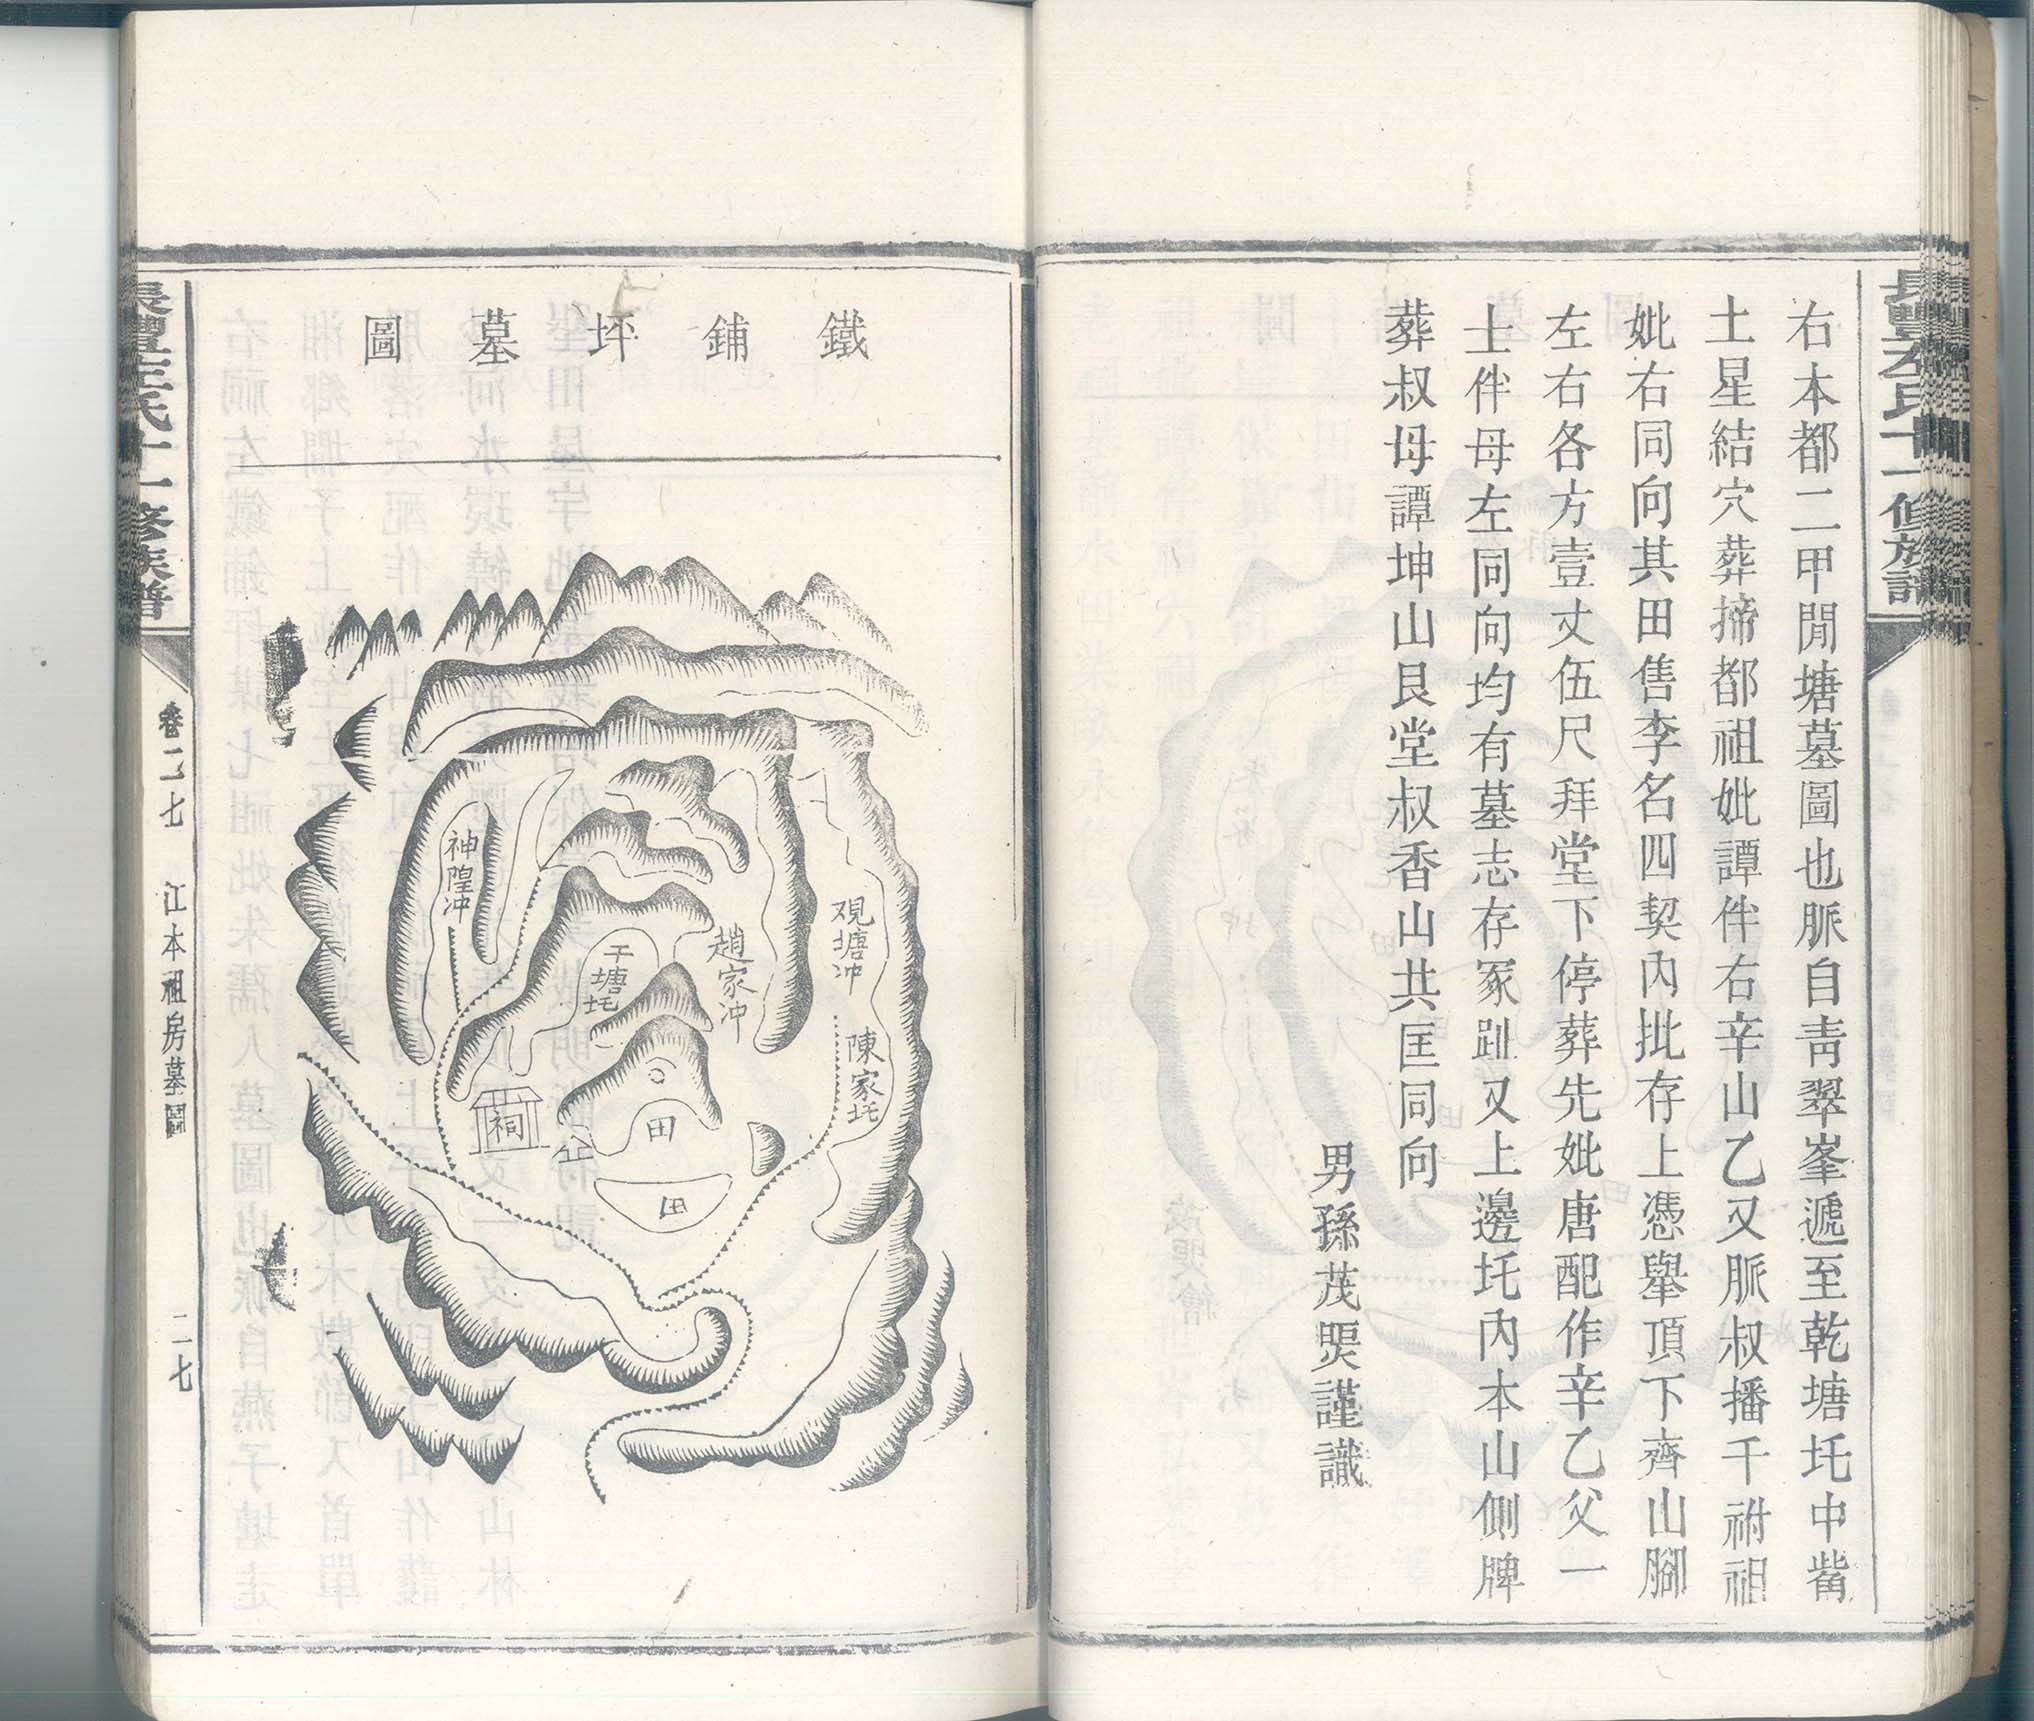 右本都二甲閒塘墓圖也脈自靑翠峯遞至乾塘圫中觜
土星結穴葬揥都祖妣譚伴右辛山乙又脈叔播千祔祖
妣右同向其田售李名四契內批存上憑舉頂下齊山腳
左右各方壹丈伍尺拜堂下停葬先妣唐配作辛乙父一
士伴母左同向均有墓志存冢趾又上邊圫內本山側牌
葬叔母譚坤山艮堂叔香山共匡同向
男孫茂煚謹識
左氏十一修族譜
卷二七
江本祖房墓圖
二七
鐵鋪坪墓圖
神隍冲
干塘圫
趙家冲
观塘冲
陳家圫
祠
田
田